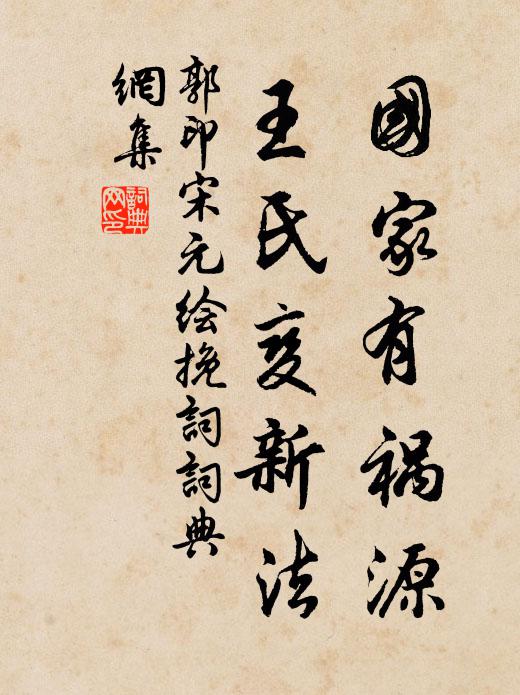 國家有禍源
王氏变新法
郭印宋元绘挽詞詞典
網集
詞典网印